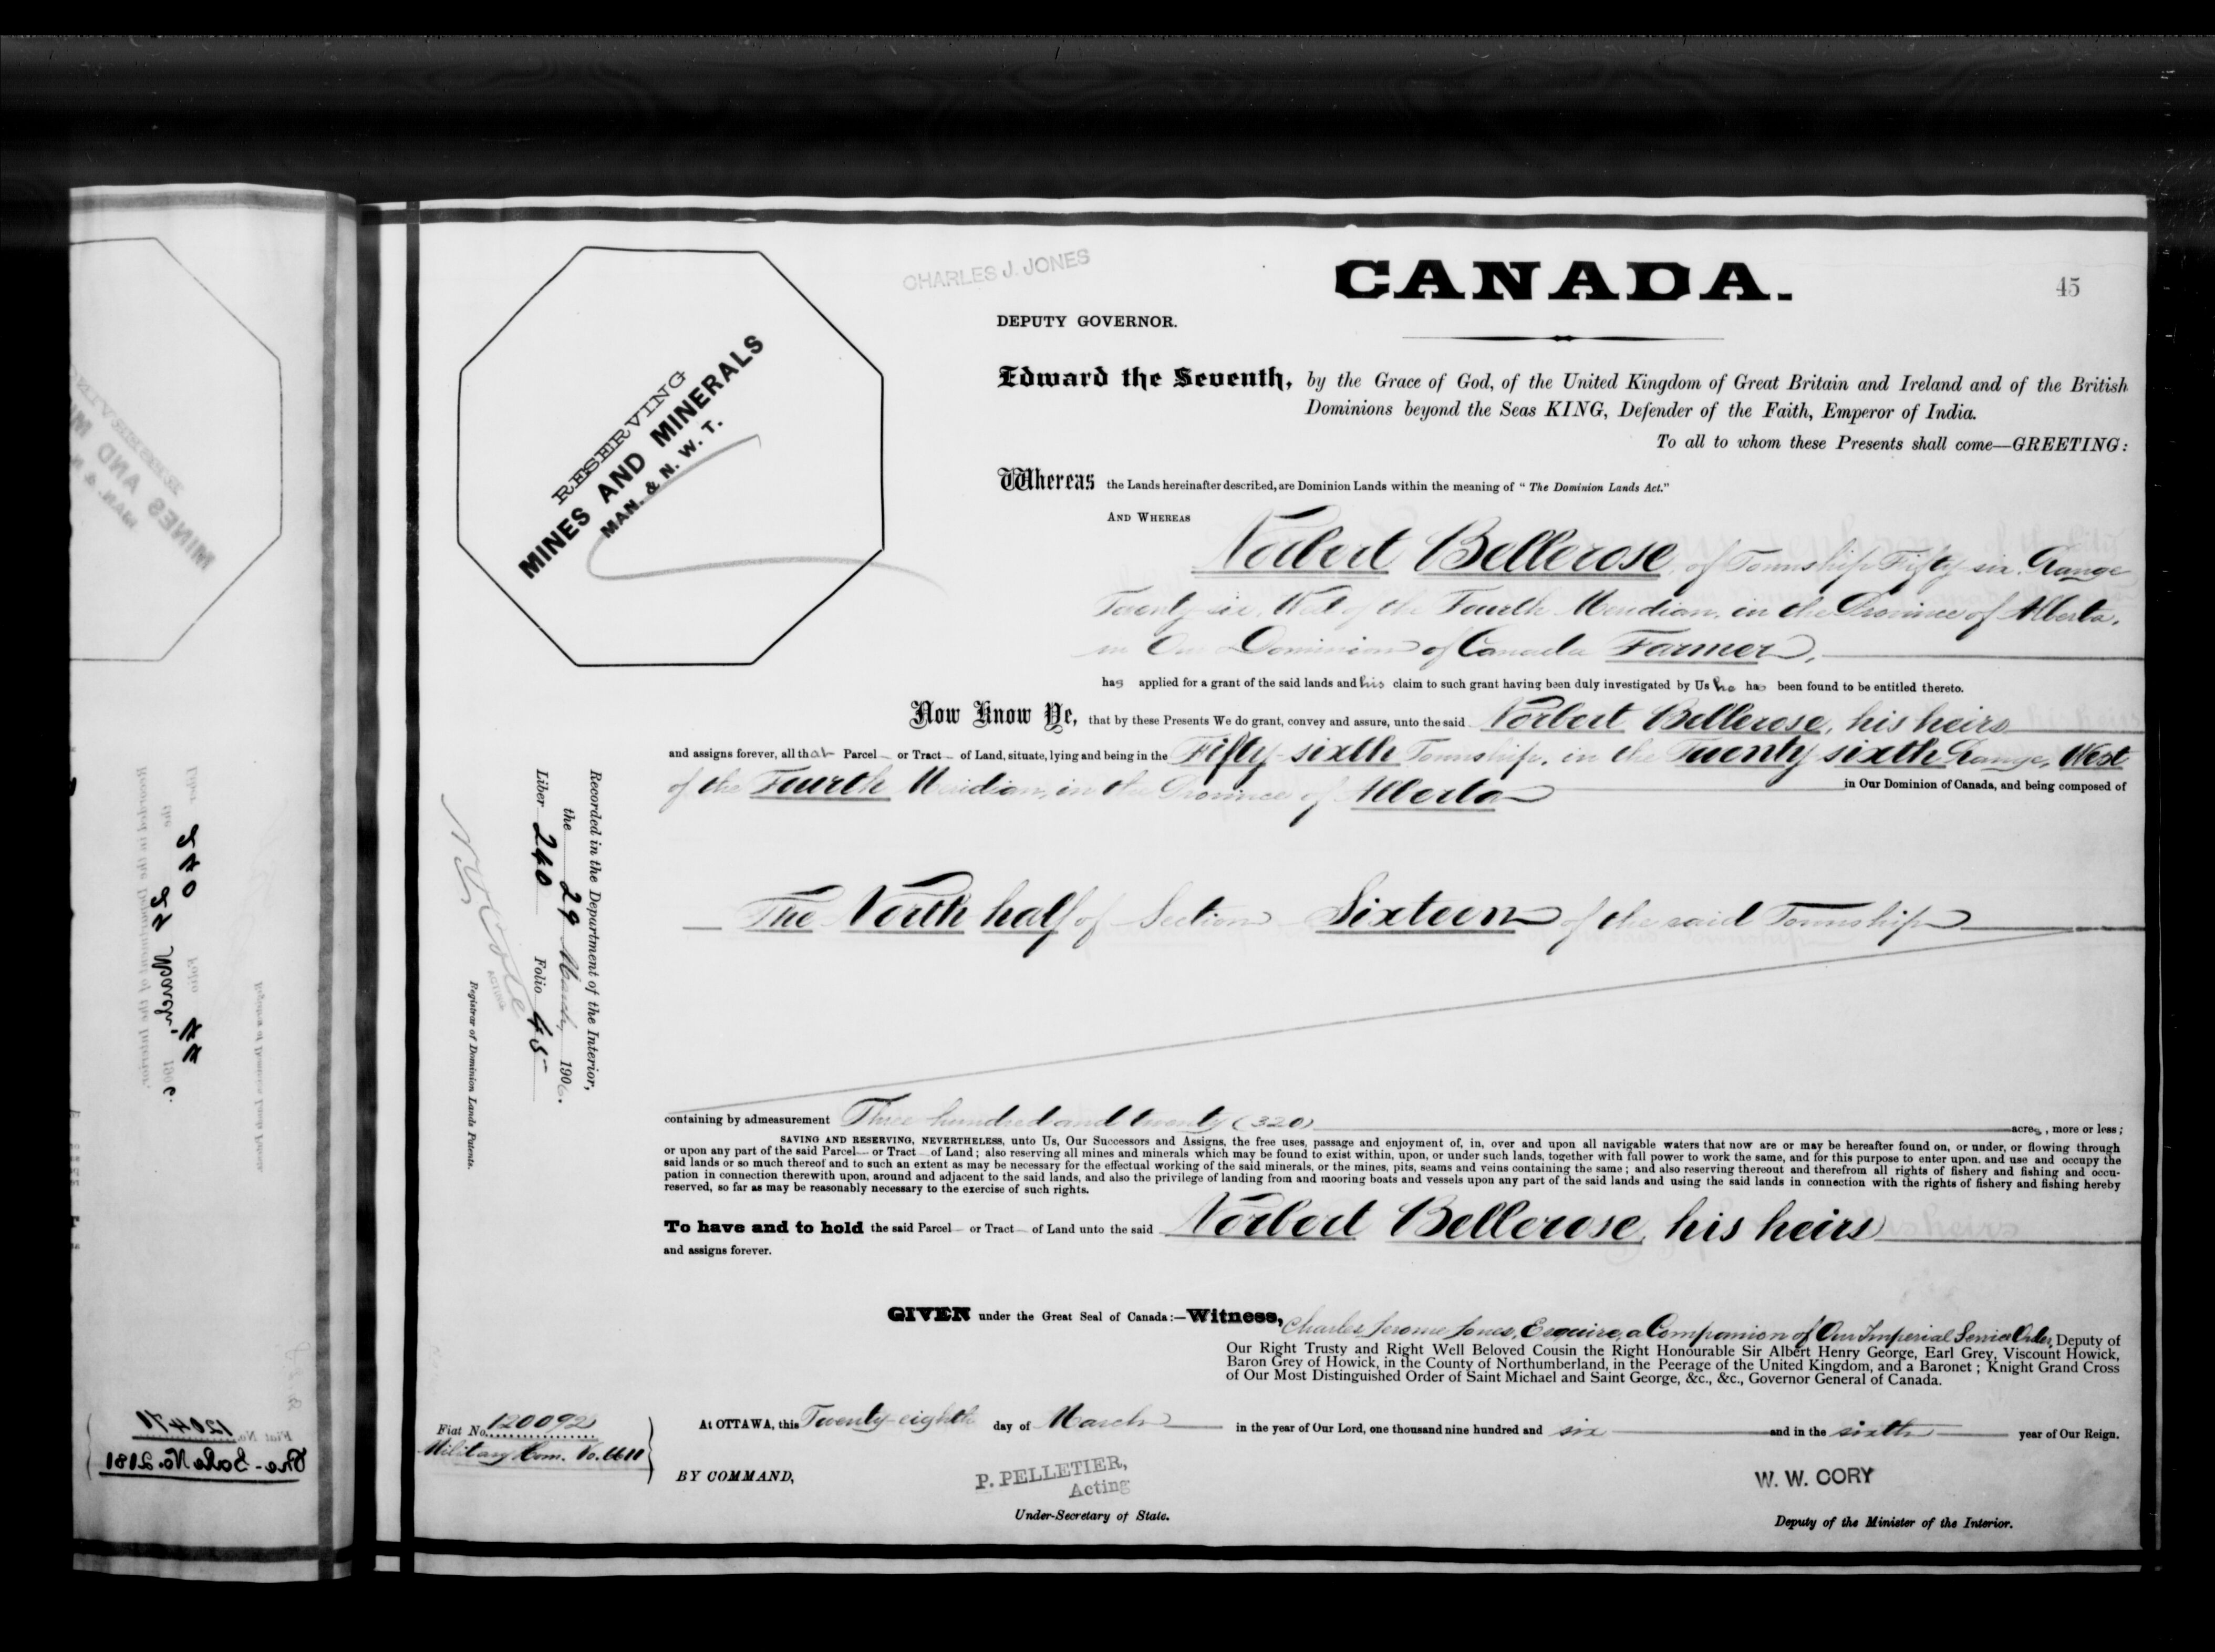 CHARLES J. JONES
CANADA.
45
DEPUTY GOVERNOR.
RESERVING
MINES AND MINERALS
MAN. & N. W. T.
Edward the Seventh, by the Grace of God, of the United Kingdom of Great Britain and Ireland and of the British
Dominions beyond the Seas KING, Defender of the Faith, Emperor of India.
To all to whom these Presents shall come—GREETING:
Whereas the Lands hereinafter described, are Dominion Lands within the meaning of "The Dominion Lands Act."
AND WHEREAS
Norbert Bellerose, of Township Fifty-six, Range
Twenty-six, West of the Fourth Meridian, in the Province of Alberta,
in Our Dominion of Canada Farmer,
has applied for a grant of the said lands and his claim to such grant having been duly investigated by Us he has been found to be entitled thereto.
Now Know Ye, that by these Presents We do grant, convey and assure, unto the said Norbert Bellerose, his heirs
and assigns forever, all that Parcel or Tract of Land, situate, lying and being in the Fifty-sixth Township, in the Twenty-sixth Range, West
of the Fourth Meridian, in the Province of Alberta in Our Dominion of Canada, and being composed of
The North half of Section Sixteen of the said Township
Recorded in the Department of the Interior,
the 29 March 1906.
Liber 240 Folio 45
Registrar of Dominion Lands Patents.
containing by admeasurement Three hundred and twenty (320) acres, more or less;
SAVING AND RESERVING, NEVERTHELESS, unto Us, Our Successors and Assigns, the free uses, passage and enjoyment of, in, over and upon all navigable waters that now are or may be hereafter found on, or under, or flowing through
or upon any part of the said Parcel or Tract of Land; also reserving all mines and minerals which may be found to exist within, upon, or under such lands, together with full power to work the same, and for this purpose to enter upon, and use and occupy the
said lands or so much thereof and to such an extent as may be necessary for the effectual working of the said minerals, or the mines, pits, seams and veins containing the same; and also reserving thereout and therefrom all rights of fishery and fishing and occu-
pation in connection therewith upon, around and adjacent to the said lands, and also the privilege of landing from and mooring boats and vessels upon any part of the said lands and using the said lands in connection with the rights of fishery and fishing hereby
reserved, so far as may be reasonably necessary to the exercise of such rights.
To have and to hold the said Parcel or Tract of Land unto the said Norbert Bellerose, his heirs
and assigns forever.
GIVEN under the Great Seal of Canada:—Witness, Charles Jerome Jones, Esquire, a Companion of Our Imperial Service Order, Deputy of
Our Right Trusty and Right Well Beloved Cousin the Right Honourable Sir Albert Henry George, Earl Grey, Viscount Howick,
Baron Grey of Howick, in the County of Northumberland, in the Peerage of the United Kingdom, and a Baronet; Knight Grand Cross
of Our Most Distinguished Order of Saint Michael and Saint George, &c., &c., Governor General of Canada.
At OTTAWA, this Twenty-eighth day of March in the year of Our Lord, one thousand nine hundred and six and in the sixth year of Our Reign.
Fiat No. 120092
Military Hom. No.
BY COMMAND,
P. PELLETIER,
Acting
Under-Secretary of State.
W. W. CORY
Deputy of the Minister of the Interior.